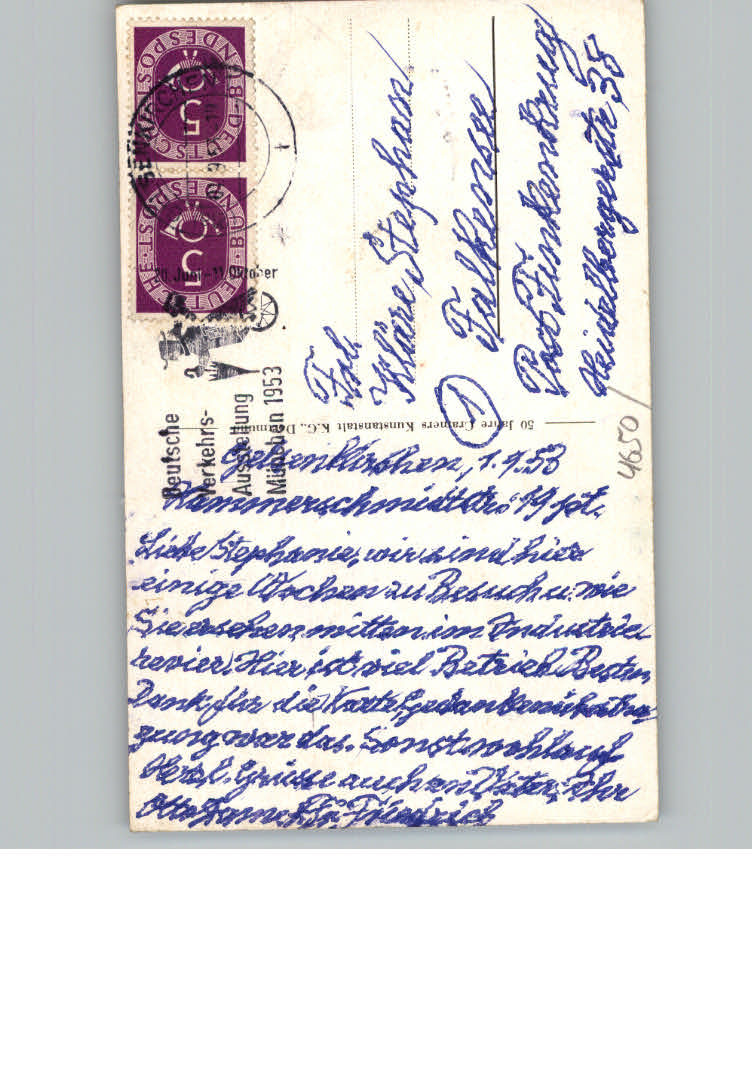 DEUTSCHE BUNDESPOST
5
DEUTSCHE BUNDESPOST
5
GELSENKIRCHEN
20. Juni–11. Oktober
Deutsche
Verkehrs-
Ausstellung
München 1953
Frl.
Kläre Stephan
Falkensee
Post Finkenkrug
Heidelbergerstr. 38
1
4650
50 Jahre Crainers Kunstanstalt K.G., Dortmund
Gelsenkirchen, 1.9.53
Hammerschmidtstr. 19 pt.
Liebe Stephanie, wir sind hier
einige Wochen zu Besuch u. wie
Sie ersehen, mitten im Industrie
revier. Hier ist viel Betrieb. Besten
Dank für die Karte, Gedankenübertra
gung war das. Sonst wohlauf
Herzl. Grüsse auch an Vater, Ihr
Otto Friedrich